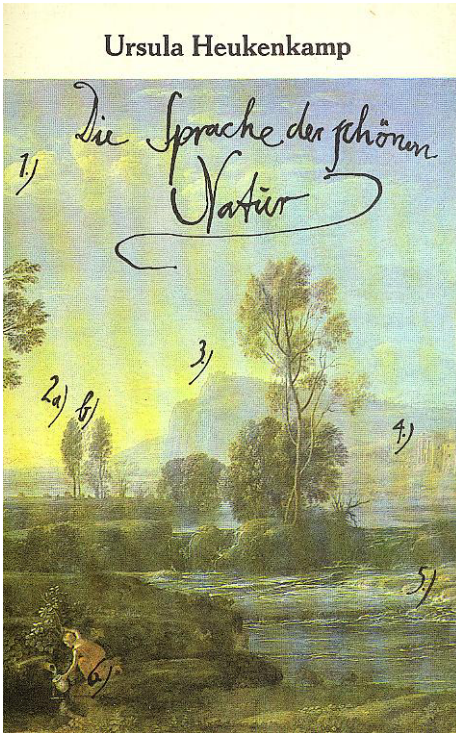 Ursula Heukenkamp
Die Sprache der schönen
Natur
1.)
3.)
2a) b)
4.)
5.)
6.)